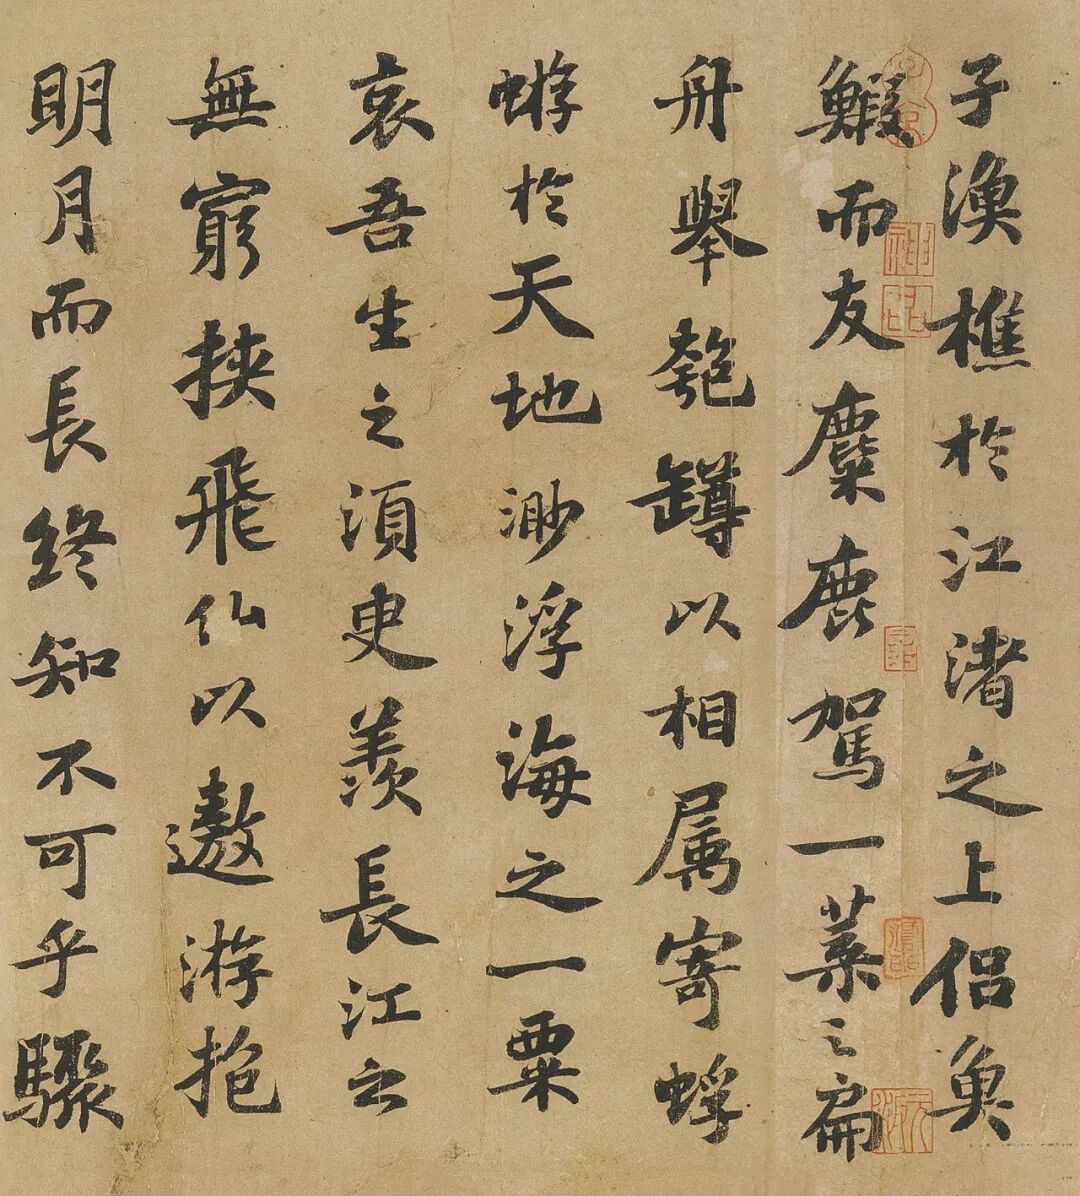 子漁樵於江渚之上侣魚
鰕而友麋鹿駕一葉之扁
舟舉匏罇以相属寄蜉
蝣於天地渺浮海之一粟
哀吾生之須臾羨長江之
無窮挾飛仙以遨游抱
明月而長終知不可乎驟